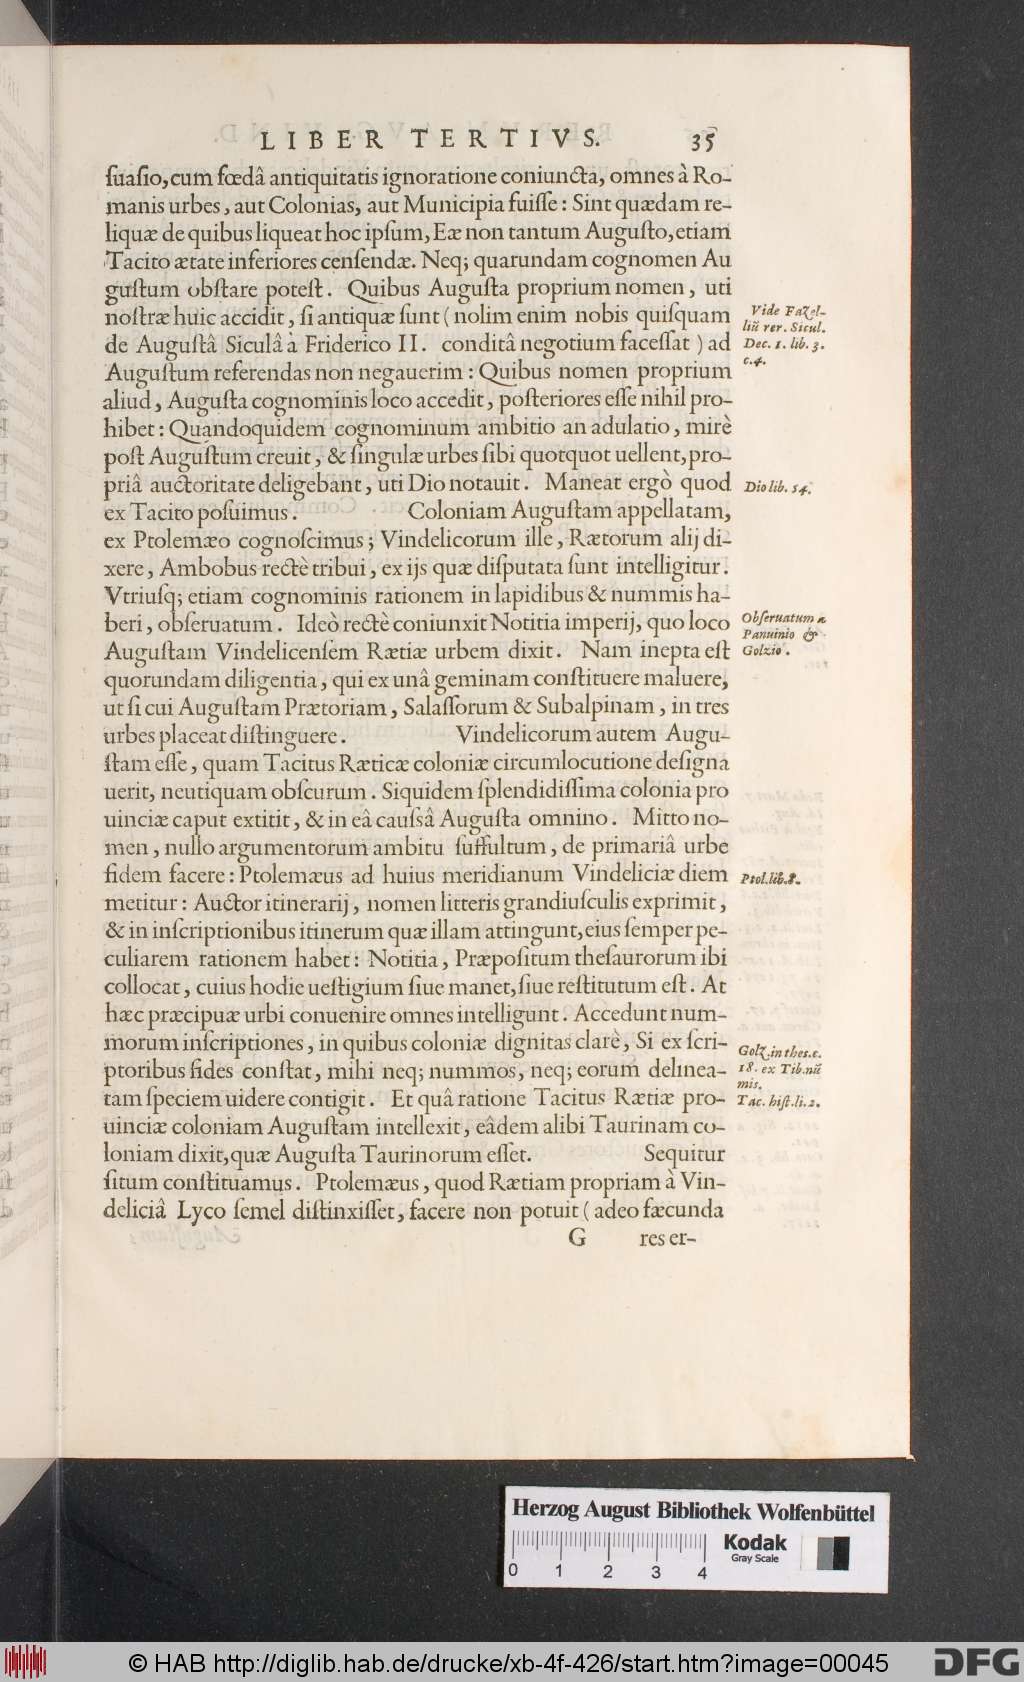 LIBER TERTIVS. 35
ſuaſio, cum fœdâ antiquitatis ignoratione coniuncta, omnes à Ro-
manis urbes, aut Colonias, aut Municipia fuiſſe: Sint quædam re-
liquæ de quibus liqueat hoc ipſum, Eæ non tantum Auguſto, etiam
Tacito ætate inferiores cenſendæ. Neq; quarundam cognomen Au
guſtum obſtare poteſt. Quibus Auguſta proprium nomen, uti
noſtræ huic accidit, ſi antiquæ ſunt (nolim enim nobis quiſquam
de Auguſtâ Siculâ à Friderico II. conditâ negotium faceſſat) ad
Auguſtum referendas non negauerim: Quibus nomen proprium
aliud, Auguſta cognominis loco accedit, poſteriores eſſe nihil pro-
hibet: Quandoquidem cognominum ambitio an adulatio, mirè
poſt Auguſtum creuit, & ſingulæ urbes ſibi quotquot uellent, pro-
priâ auctoritate deligebant, uti Dio notauit. Maneat ergò quod
ex Tacito poſuimus. Coloniam Auguſtam appellatam,
ex Ptolemæo cognoſcimus; Vindelicorum ille, Rætorum alij di-
xere, Ambobus rectè tribui, ex ijs quæ diſputata ſunt intelligitur.
Vtriuſq; etiam cognominis rationem in lapidibus & nummis ha-
beri, obſeruatum. Ideò rectè coniunxit Notitia imperij, quo loco
Auguſtam Vindelicenſem Rætiæ urbem dixit. Nam inepta eſt
quorundam diligentia, qui ex unâ geminam conſtituere maluere,
ut ſi cui Auguſtam Prætoriam, Salaſſorum & Subalpinam, in tres
urbes placeat diſtinguere. Vindelicorum autem Augu-
ſtam eſſe, quam Tacitus Ræticæ coloniæ circumlocutione deſigna
uerit, neutiquam obſcurum. Siquidem ſplendidiſſima colonia pro
uinciæ caput extitit, & in eâ cauſsâ Auguſta omnino. Mitto no-
men, nullo argumentorum ambitu ſuffultum, de primariâ urbe
fidem facere: Ptolemæus ad huius meridianum Vindeliciæ diem
metitur: Auctor itinerarij, nomen litteris grandiuſculis exprimit,
& in inſcriptionibus itinerum quæ illam attingunt, eius ſemper pe-
culiarem rationem habet: Notitia, Præpoſitum theſaurorum ibi
collocat, cuius hodie ueſtigium ſiue manet, ſiue reſtitutum eſt. At
hæc præcipuæ urbi conuenire omnes intelligunt. Accedunt num-
morum inſcriptiones, in quibus coloniæ dignitas clarè, Si ex ſcri-
ptoribus fides conſtat, mihi neq; nummos, neq; eorum delinea-
tam ſpeciem uidere contigit. Et quâ ratione Tacitus Rætiæ pro-
uinciæ coloniam Auguſtam intellexit, eâdem alibi Taurinam co-
loniam dixit, quæ Auguſta Taurinorum eſſet. Sequitur
ſitum conſtituamus. Ptolemæus, quod Rætiam propriam à Vin-
deliciâ Lyco ſemel diſtinxiſſet, facere non potuit (adeo fæcunda
G res er-
Vide Fazel-
liũ rer. Sicul.
Dec. 1. lib. 3.
c. 4.
Dio lib. 54.
Obſeruatum à
Panuinio &
Golzio.
Ptol. lib. 8.
Golz. in theſ. c.
18. ex Tib. nũ
mis.
Tac. hiſt. li. 2.
Herzog August Bibliothek Wolfenbüttel
0 1 2 3 4
Kodak
Gray Scale
© HAB http://diglib.hab.de/drucke/xb-4f-426/start.htm?image=00045
DFG